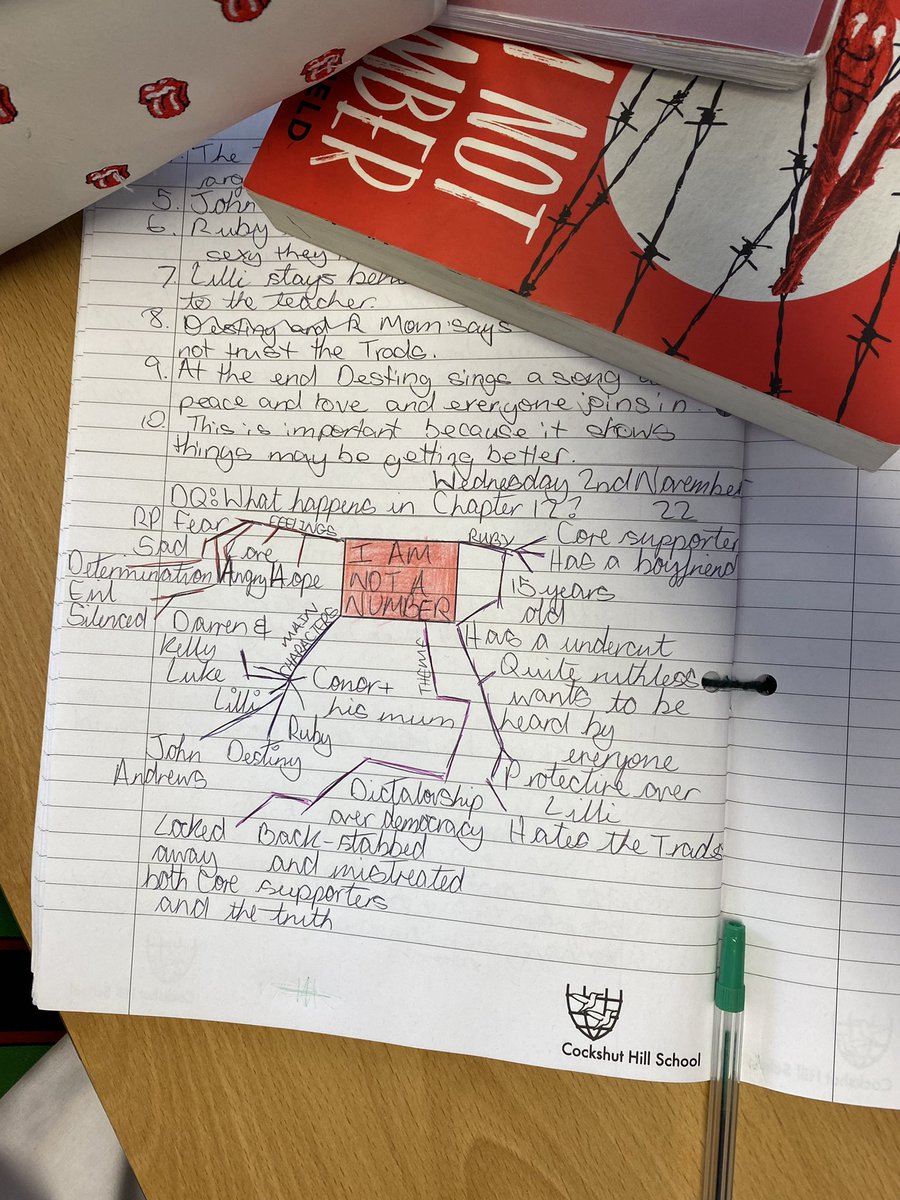 NOT
MBER
ELD
The
arg
5. John
6. Ruby
sexy they
7. Lilli stays
to the teacher.
8. Mom says
not trust the Trads.
9. At the end Destiny sings a song
peace and love and everyone joins in.
10. This is important because it shows
things may be getting better.
Wednesday 2nd November
22
DQ: What happens in Chapter 17?
RP Fear
FEELINGS
Sad
Core
Determination Angry Hope
Silenced
I AM
NOT A
NUMBER
RUBY
Core supporter
Has a boyfriend
15 years
old
Has a undercut
Quite ruthless
wants to be
heard by
everyone
Protective over
Lilli
Hates the Trads
MAIN
CHARACTERS
Darren &
Kelly
Luke
Lilli
John
Andrews
Destiny
Ruby
Conor +
his mum
THEME
Dictatorship
over democracy
Back-stabbed
and mistreated
Locked
away
both Core supporters
and the truth
Cockshut Hill School